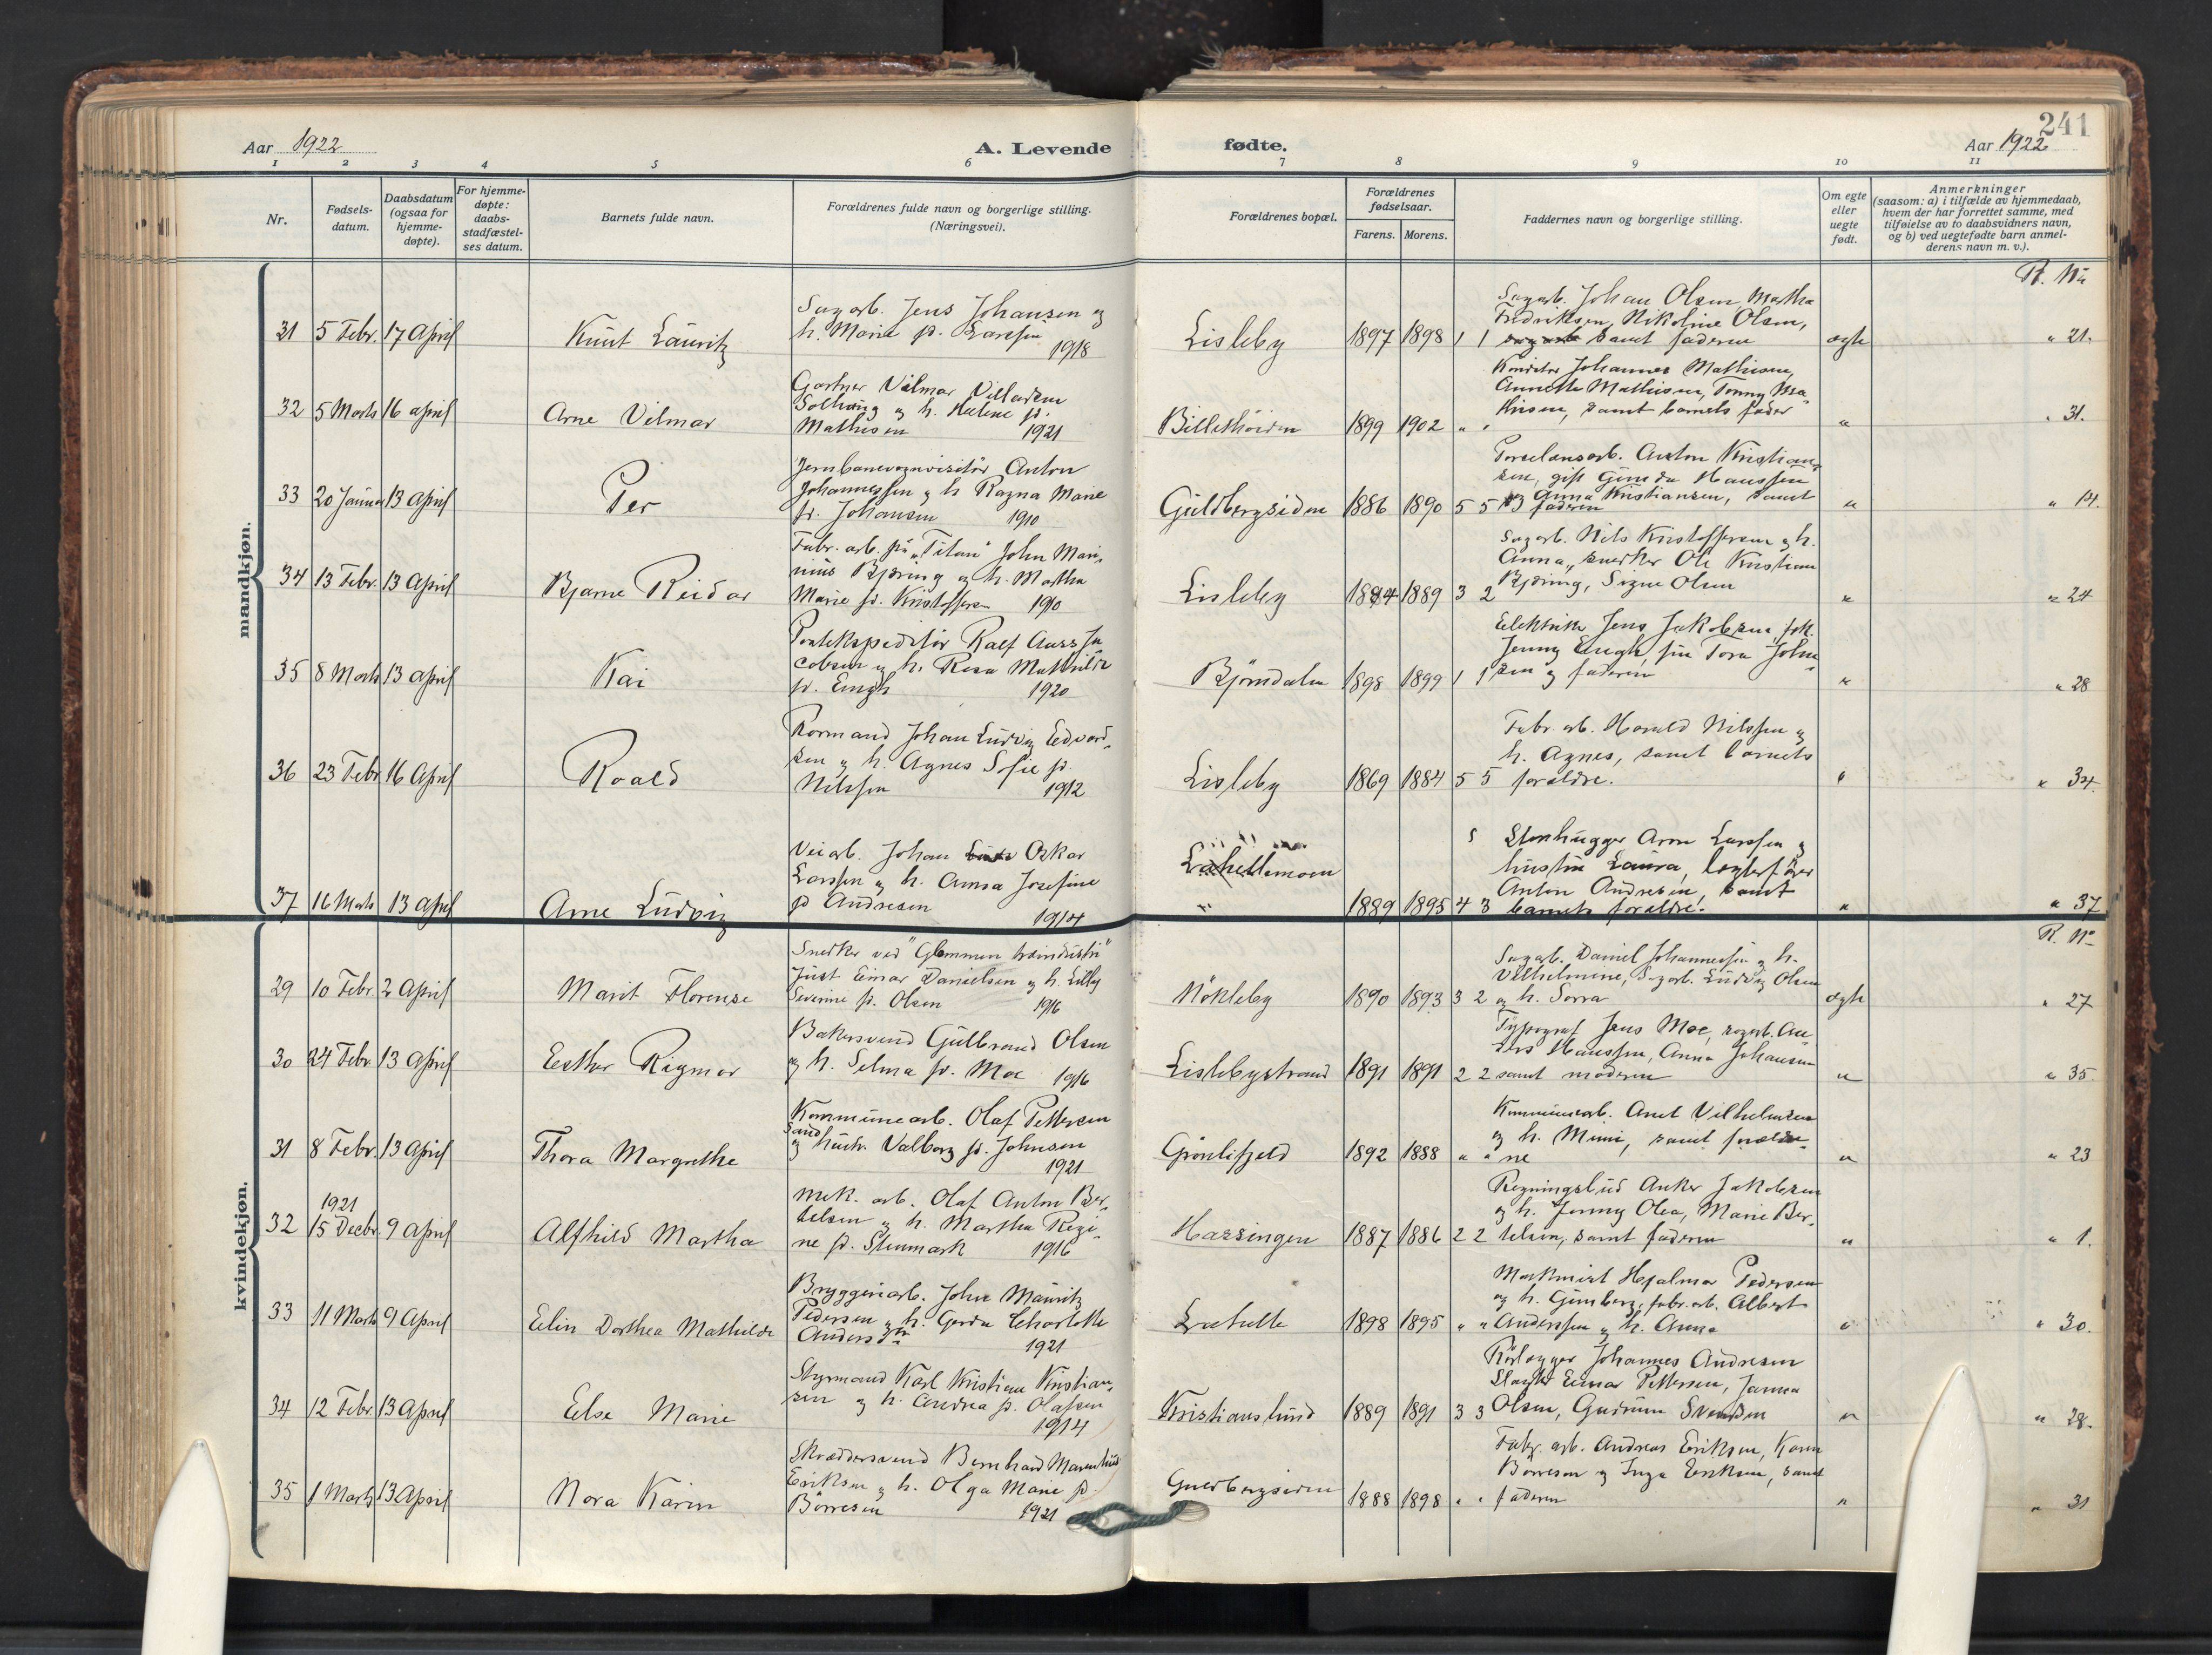 Aar 1922
A. Levende
fødte.
241
Aar 1922
1 2 3 4 5 6 7 8 9 10 11
Nr.
Fødsels-
datum.
Daabsdatum
(ogsaa for
hjemme-
døpte).
For hjemme-
døpte:
daabs-
stadfæstel-
ses datum.
Barnets fulde navn.
Forældrenes fulde navn og borgerlige stilling.
(Næringsvei).
Forældrenes bopæl.
Forældrenes
fødselsaar.
Farens. Morens.
Faddernes navn og borgerlige stilling.
Om egte
eller
uegte
født.
Anmerkninger
(saasom: a) i tilfælde av hjemmedaab,
hvem der har forrettet samme, med
tilføielse av to daabsvidners navn,
og b) ved uegtefødte barn anmel-
derens navn m. v.).
mandkjøn.
R. No
31 5 Febr. 17 April Knut Lauritz
Sagarb. Jens Johansen og
h. Marie f. Larssen
1918
Lisleby 1897 1898 1 1
Sagarb. Johan Olsen, Martha
Fredriksen, Nikoline Olsen,
samt faderen
ægte " 21.
32 5 Marts 16 april Arne Vilmar
Gartner Vilmar Villadsen
Solhaug og h. Helene f.
Mathisen 1921
1899 1902 " "
Konditor Johannes Mathisen,
Annette Mathisen, Tonny Ma-
thisen, samt barnets fader
" " 31.
33 20 Januar 13 April Per
Jernbanevognvisitør Anton
Johannessen og h. Ragna Marie
f. Johansen 1910
Guldbergsiden 1886 1890 5 5
Porselensarb. Anton Kristian-
sen, gift Gunda Hanssen
Anna Kristiansen, samt
faderen
" " 14.
34 13 Febr. 13 April Bjarne Reidar
Fabr. arb. på "Titan" John Mari-
nius Bjøring og h. Martha
Marie f. Kristoffersen 1910
Lisleby 1884 1889 3 2
Sagarb. Nils Kristoffersen og h.
Anna, snedker Ole Kristian
Bjøring, Signe Olsen
" " 24
35 8 Marts 13 April Kai
Postekspeditør Ralf Aass Ja-
cobsen og h. Rosa Mathilde
f. Engh 1920
Bjørndalen 1898 1899 1 1
Elektriker Jens Jakobsen, frk.
Jenny Engh, frn Tora John-
sen og faderen
" " 28
36 23 Febr. 16 April Roald
Rormand Johan Ludvig Edvard-
sen og h. Agnes Sofie f.
Nilssen 1912
Lisleby 1869 1884 5 5
Fabr. arb. Harald Nilssen og
h. Agnes, samt barnets
forældre.
" " 34.
37 16 Marts 13 April Arne Ludvig
Veiarb. Johan Oskar
Larssen og h. Anna Josefine
f. Andresen 1914
1889 1895 4 3
Stenhugger Arne Larssen og
hustru Laura, logterfører
Anton Andresen, samt
barnets forældre.
" " 37
kvindekjøn.
R. No
29 10 Febr. 2 April Marit Florense
Snedker ved "Glommen træindustri"
Just Einar Danielsen og h. Lilly
Severine f. Olsen 1916
Nøkleby 1890 1893 3 2
Sagarb. Daniel Johannessen og h.
Vilhelmine, Sagarb. Ludvig Olsen
og h. Sorra
ægte " 27
30 24 Febr. 13 April Esther Rigmor
Bakersvend Gulbrand Olsen
og h. Selma f. Moe 1916
Lislebystrand 1891 1891 2 2
Typograf Jens Moe, sagarb. An-
ders Hanssen, Anna Johansen
samt moderen
" " 35.
31 8 Febr. 13 April Thora Margrethe
Kommunearb. Olaf Pettersen
Sand
og hustr. Valborg f. Johnsen
1921
Grønlifjeld 1892 1888 " "
Kommunearb. Anet Vilhelmsen
og h. Mimi, samt foreldre-
ne
" " 23
32
1921
15 Decbr. 9 April Alfhild Martha
Mek. arb. Olaf Anton Ber-
telsen og h. Martha Regi-
ne f. Stenmark 1916
Hassingen 1887 1886 2 2
Regningsbud Anker Jakobsen
og h. Jenny Olea, Marie Ber-
telsen, samt faderen
" " 1.
33 11 Marts 9 April Elin Dorthea Mathilde
Bryggeriarb. John Mauritz
Pedersen og h. Gerda Charlotte
Andersdtr.
1921
Læhelle 1898 1895 " "
Maskinist Hjalmar Pedersen
og h. Gunborg, fabr. arb. Albert
Anderssen og h. Anna
" " 30.
34 12 Febr. 13 April Else Marie
Styrmand Karl Kristian Kristian-
sen og h. Andrea f. Olafsen
1914
Kristianslund 1889 1891 3 3
Rørlægger Johannes Andresen
Slagter Einar Pettersen, Janna
Olsen, Gudrun Svendsen
" " 28.
35 1 Marts 13 April Nora Karin
Skræddersvend Bernhard Marenius
Eriksen og h. Olga Marie f.
Børresen 1921
Guldbergsiden 1888 1898 " "
Fabr. arb. Andreas Eriksen, Karen
Børresen og Inga Eriksen, samt
faderen
" " 31